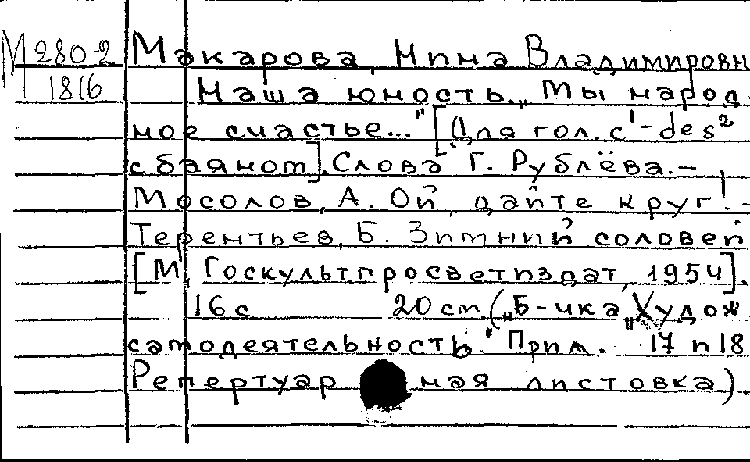 М 280-2 Макарова, Нина Владимировн
1816 Наша юность. „Ты народ-
ное счастье..." [Для гол. c¹-des²
с баяном]. Слова Г. Рублёва. –
Мосолов, А. Ой, дайте круг! –
Терентьев, Б. Зимний соловей
[М, Госкультпросветиздат, 1954].
16 с 20 см. („Б-чка „Худож
самодеятельность." Прим. 17 и 18
Репертуар ная листовка)